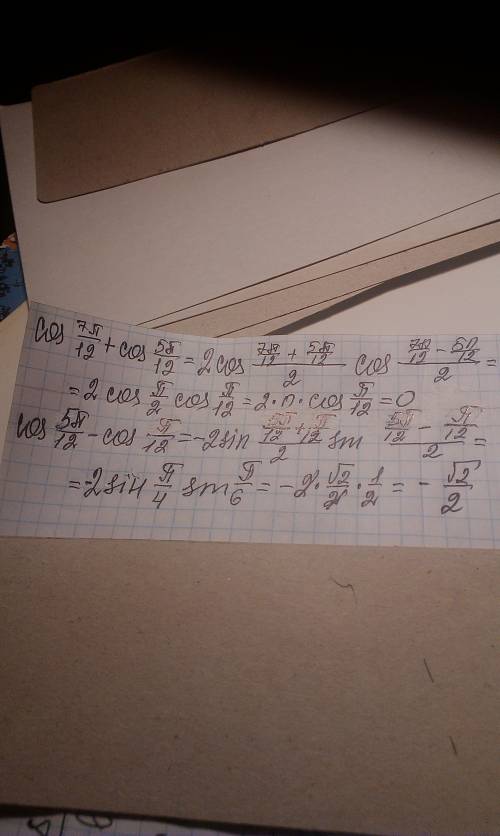 cos 7π/12 + cos 5π/12 = 2cos (7π/12 + 5π/12)/2 cos (7π/12 - 5π/12)/2 =
= 2 cos π/2 cos π/12 = 2·0·cos π/12 = 0
cos 5π/12 - cos π/12 = -2sin (5π/12 + π/12)/2 sin (5π/12 - π/12)/2 =
= -2sin π/4 sin π/6 = -2·√2/2·1/2 = -√2/2